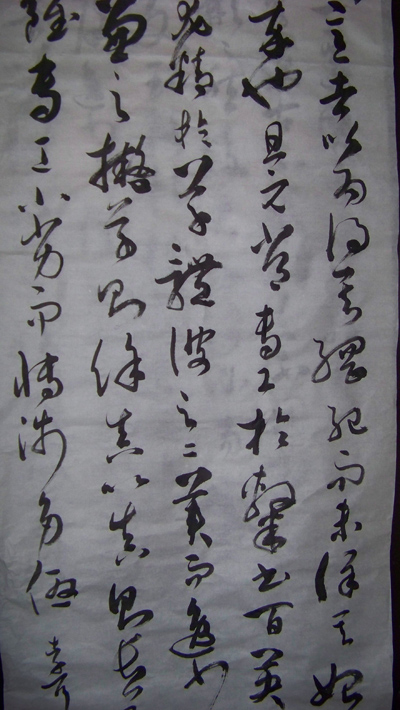 意者以為得其綱紀而未詳其始
卒也且元常專工於隸書百英
尤精於草體彼之二美而逸少
兼之擬草則餘真比真則長
雖專工小劣而博涉多優